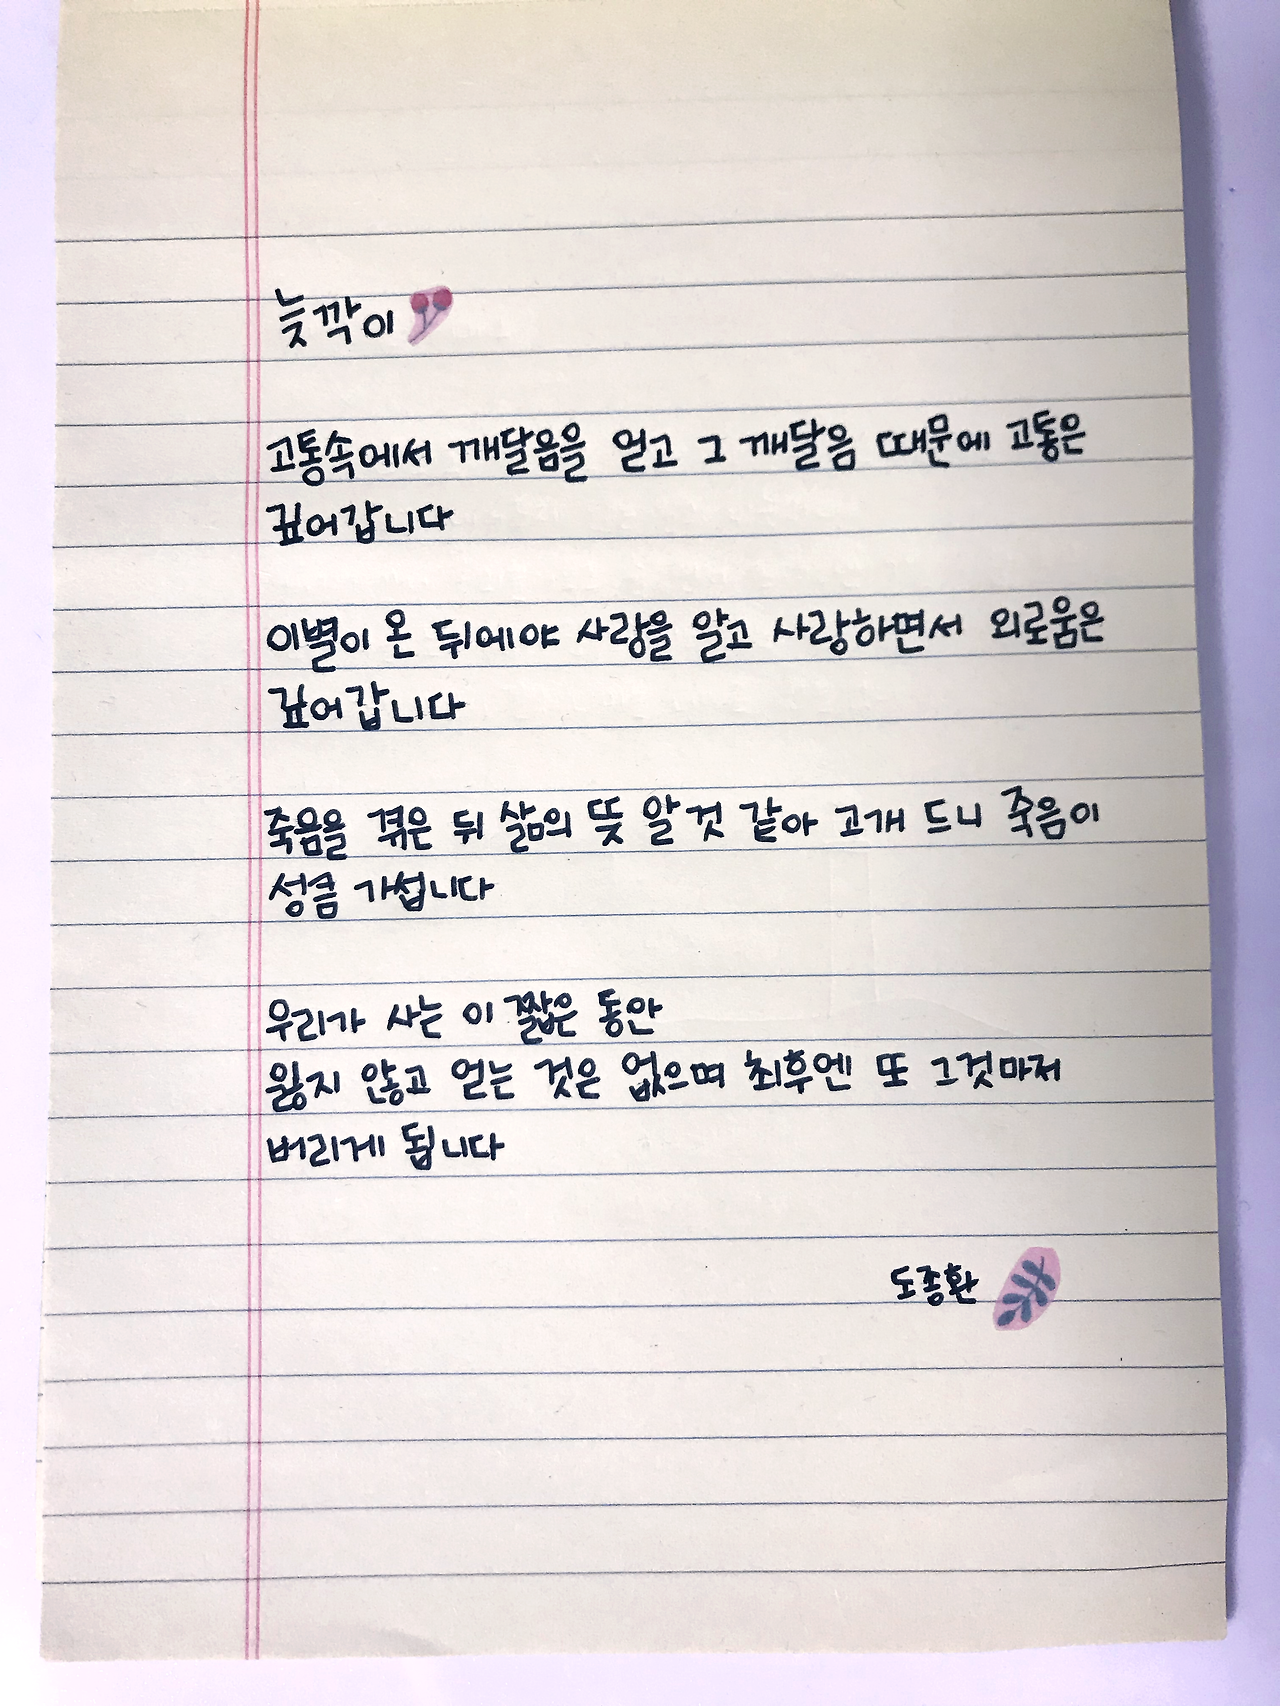 늦깎이
고통속에서 깨달음을 얻고 그 깨달음 때문에 고통은
깊어갑니다
이별이 온 뒤에야 사랑을 알고 사랑하면서 외로움은
깊어갑니다
죽음을 겪은 뒤 삶의 뜻 알 것 같아 고개 드니 죽음이
성큼 가섭니다
우리가 사는 이 짧은 동안
잃지 않고 얻는 것은 없으며 최후엔 또 그것마저
버리게 됩니다
도종환